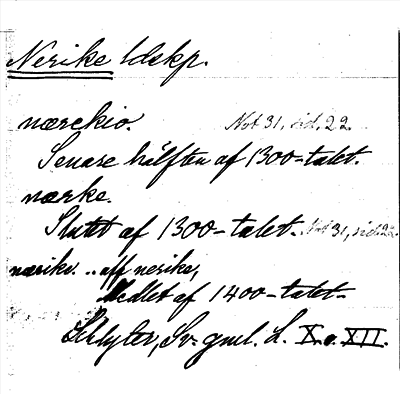 Nerike ldskp.
nærekio. Not 31, sid. 22.
Senare hälften af 1300-talet.
nærke.
Slutet af 1300-talet. Not 31, sid. 22
nærike. .. aff nerike,
Medlet af 1400-talet.
Schlyter, Sv. gml. L. X o. XII.